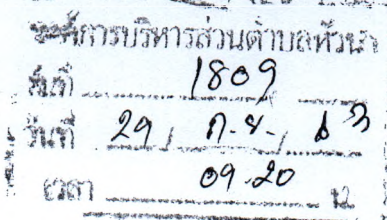 องค์การบริหารส่วนตำบลหัวนา
รับที่ 1809
วันที่ 29 / ก.ย. /
เวลา 09.20 น.